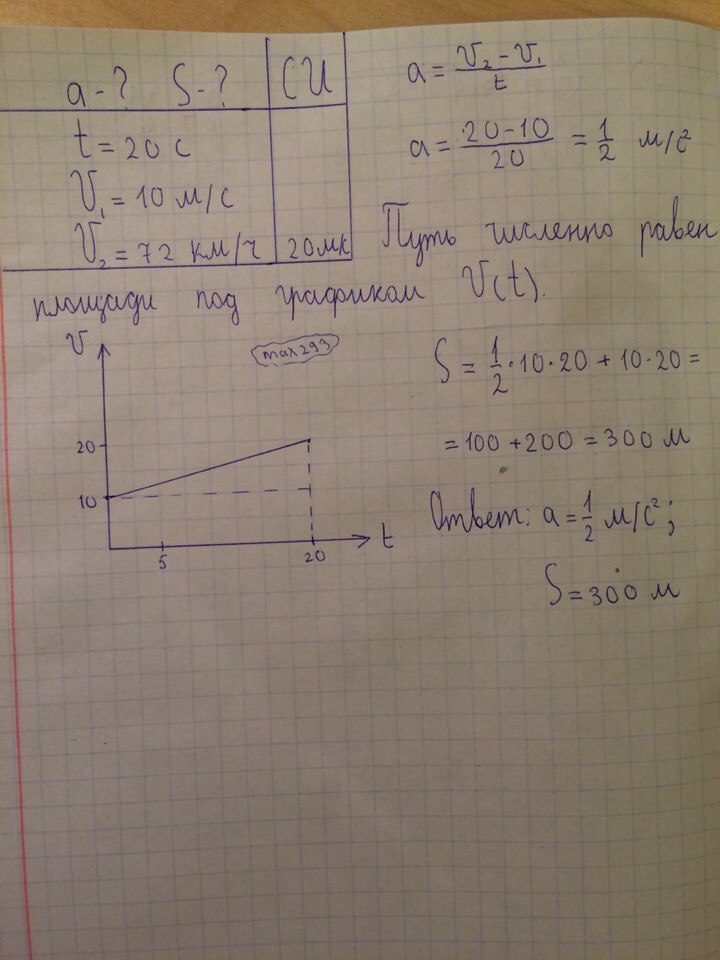 a - ? S - ? СИ
t = 20 с
V₁ = 10 м/с
V₂ = 72 км/ч 20мк
a = (V₂ - V₁)/t
a = (20 - 10)/20 = 1/2 м/с²
Путь численно равен
площади под графиком V(t).
V
max293
20
10
5
20
t
S = 1/2 · 10 · 20 + 10 · 20 =
= 100 + 200 = 300 м
Ответ: a = 1/2 м/с²;
S = 300 м